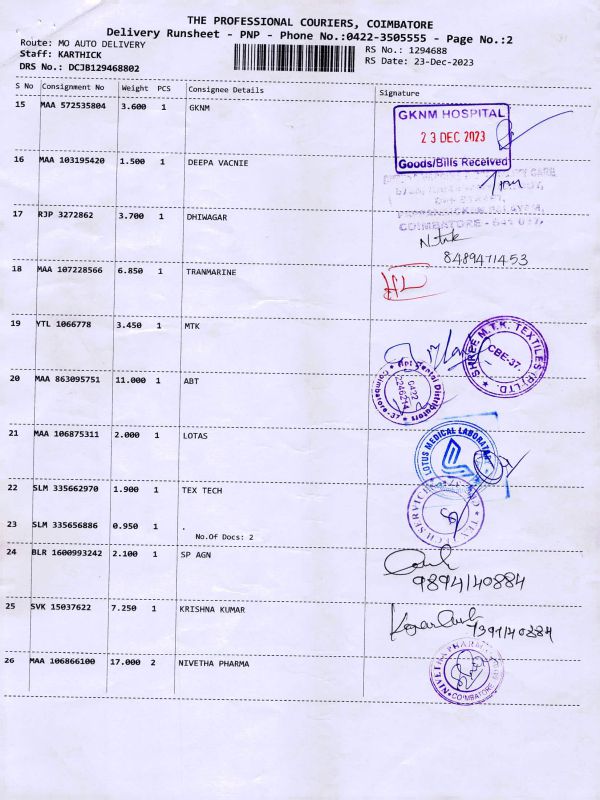 THE PROFESSIONAL COURIERS, COIMBATORE
Delivery Runsheet - PNP - Phone No.:0422-3505555 - Page No.:2
Route: MO AUTO DELIVERY RS No.: 1294688
Staff: KARTHICK RS Date: 23-Dec-2023
DRS No.: DCJB129468802
S No Consignment No Weight PCS Consignee Details Signature
15 MAA 572535804 3.600 1 GKNM
GKNM HOSPITAL
23 DEC 2023
Goods/Bills Received
16 MAA 103195420 1.500 1 DEEPA VACNIE
COIMBATORE
17 RJP 3272862 3.700 1 DHIWAGAR
8489471453
18 MAA 107228566 6.850 1 TRANMARINE
HL
19 YTL 1066778 3.450 1 MTK
SHREE M.T.K. TEXTILES (P) LTD.
CBE-37.
20 MAA 863095751 11.000 1 ABT
Dental Distributors
Coimbatore-37
0422
2246214
21 MAA 106875311 2.000 1 LOTAS
LOTUS MEDICAL LABORATAR
22 SLM 335662970 1.900 1 TEX TECH
23 SLM 335656886 0.950 1 .
No.Of Docs: 2
24 BLR 1600993242 2.100 1 SP AGN
9894140884
25 SVK 15037622 7.250 1 KRISHNA KUMAR
7391140884
26 MAA 106866100 17.000 2 NIVETHA PHARMA
NIVETHA PHARMA
COIMBATORE